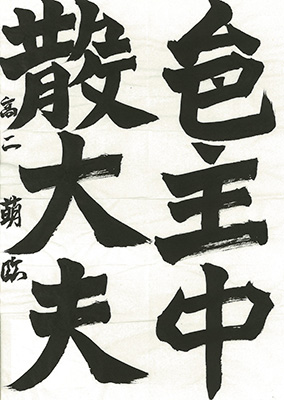 邑主中
散大夫
高二 萌 臨